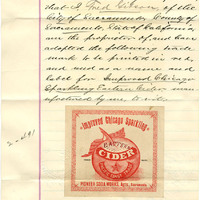 that I, Fred
of the
City of Sacramento, County of
Sacramento, State of California
am the proprietor of, and have
adopted the following trade
mark to be printed in
red, and used as a name and
label for Improved Chicago
Sparkling Eastern Cider man-
ufactured by me to wit:
Improved Chicago Sparkling
EASTERN
CIDER
PIONEER SODA WORKS,